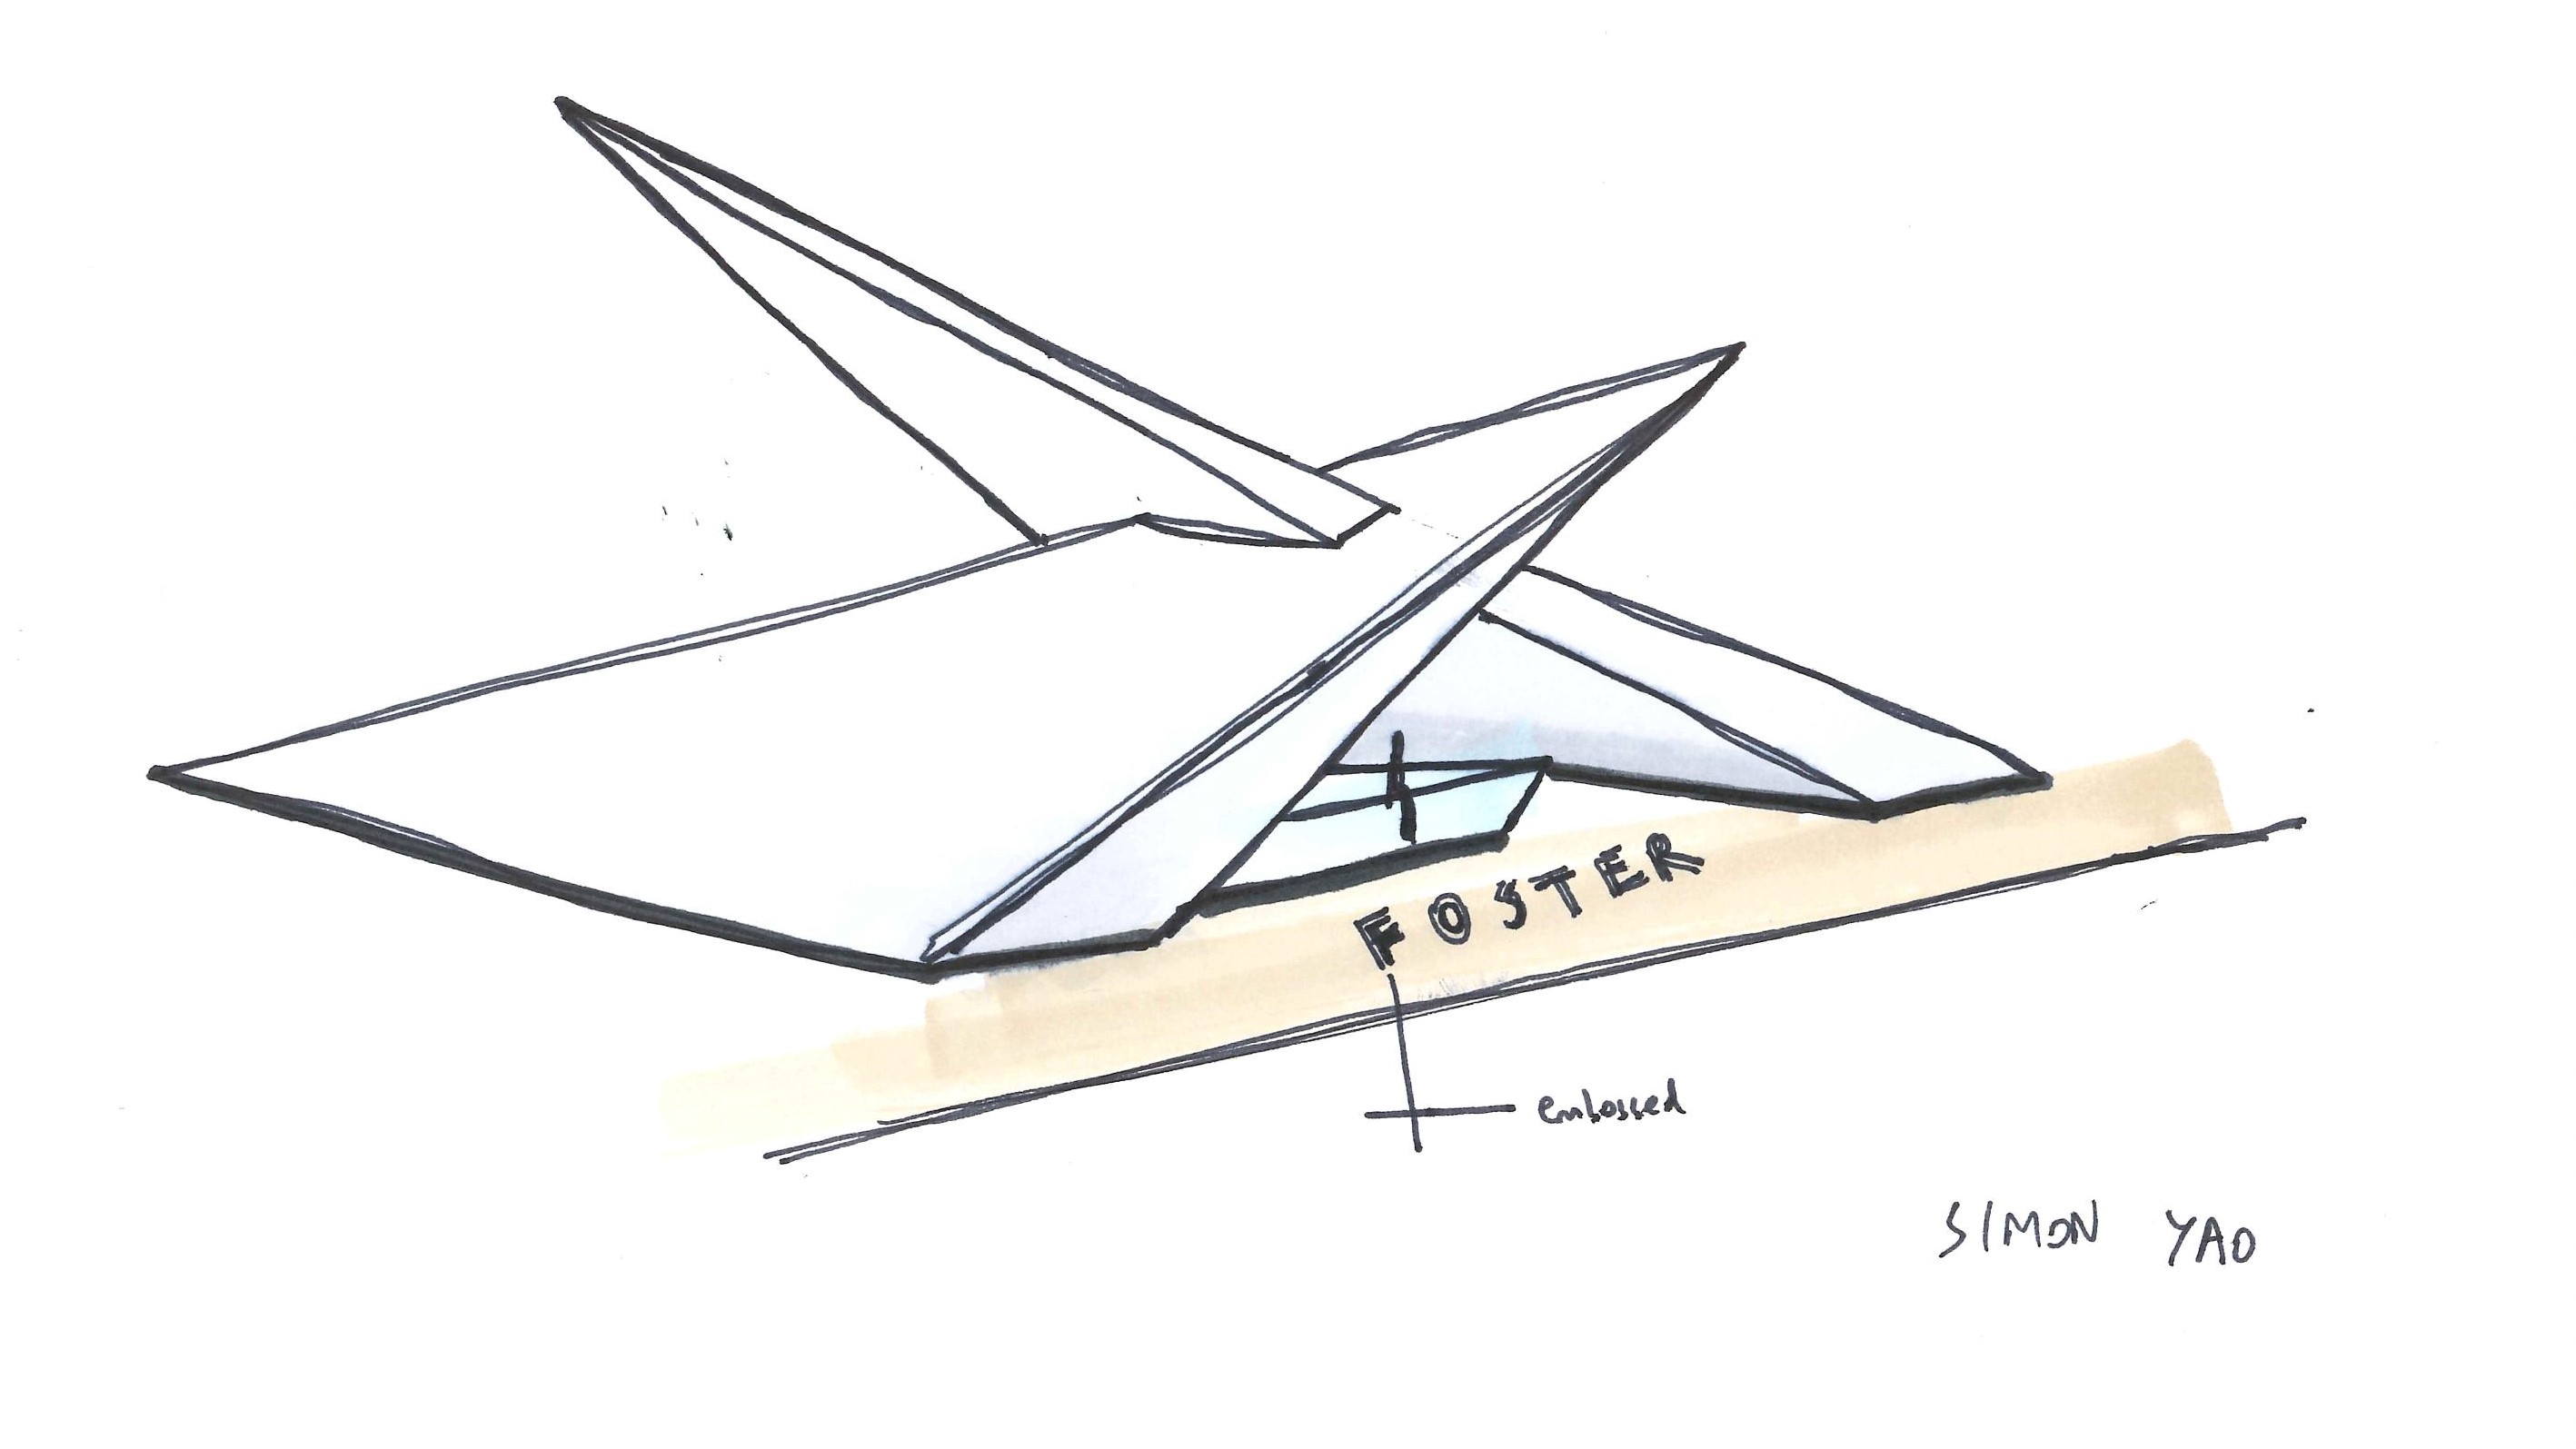 FOSTER
embossed
SIMON YAO